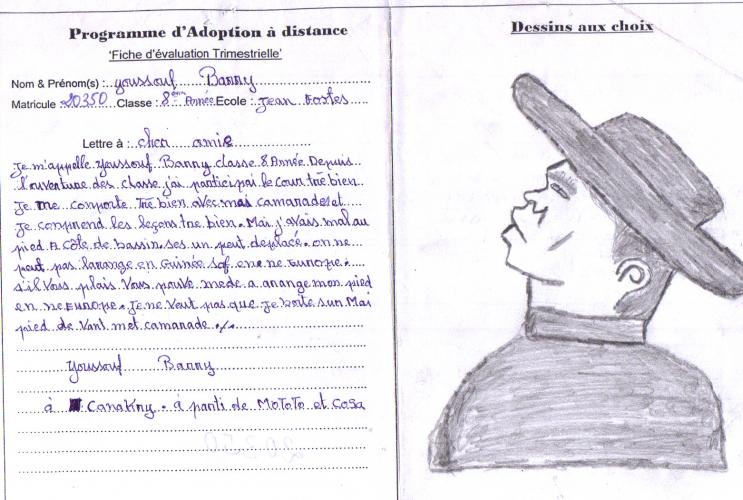 Programme d'Adoption à distance
'Fiche d'évaluation Trimestrielle'
Nom & Prénom(s) : youssouf Barry
Matricule 20350 Classe : 8ème Année Ecole : Jean Fortes
Lettre à : cher amie
Je m'appelle youssouf Barry classe 8 Année Depuis
l'ouverture des classe j'ai participai le cour trè bien
Je me comporte Trè bien avec mas camarades et
Je comprend les leçons tre bien. Mai j'avais mal au
pied A côte de bassin ses un peut deplace. on ne
peut pas larange en Guinée sof en Europe.
s'il Vous plais Vous pouvé mede a arange mon pied
en Europe. Je ne Veut pas que Je boite sur Mai
pied de Vant met camarade
youssouf Barry
à Conakry. à parti de MoToTo et Cosa
Dessins aux choix